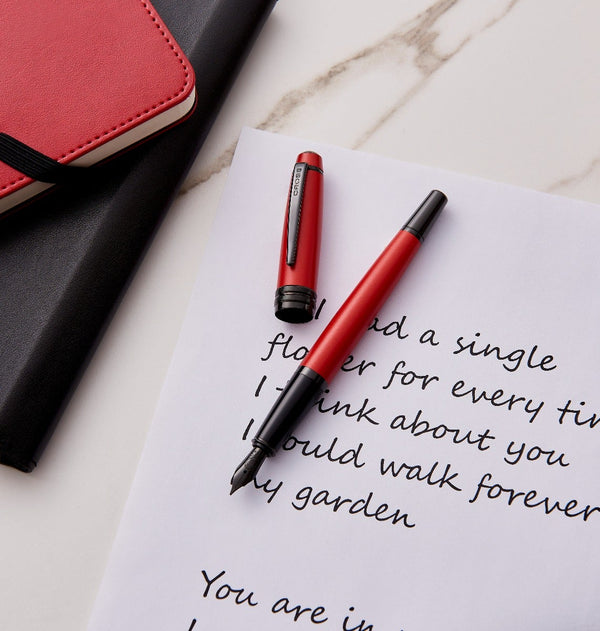 CROSS
ad a single
for every
I think about you
would walk forever
my garden
You are in